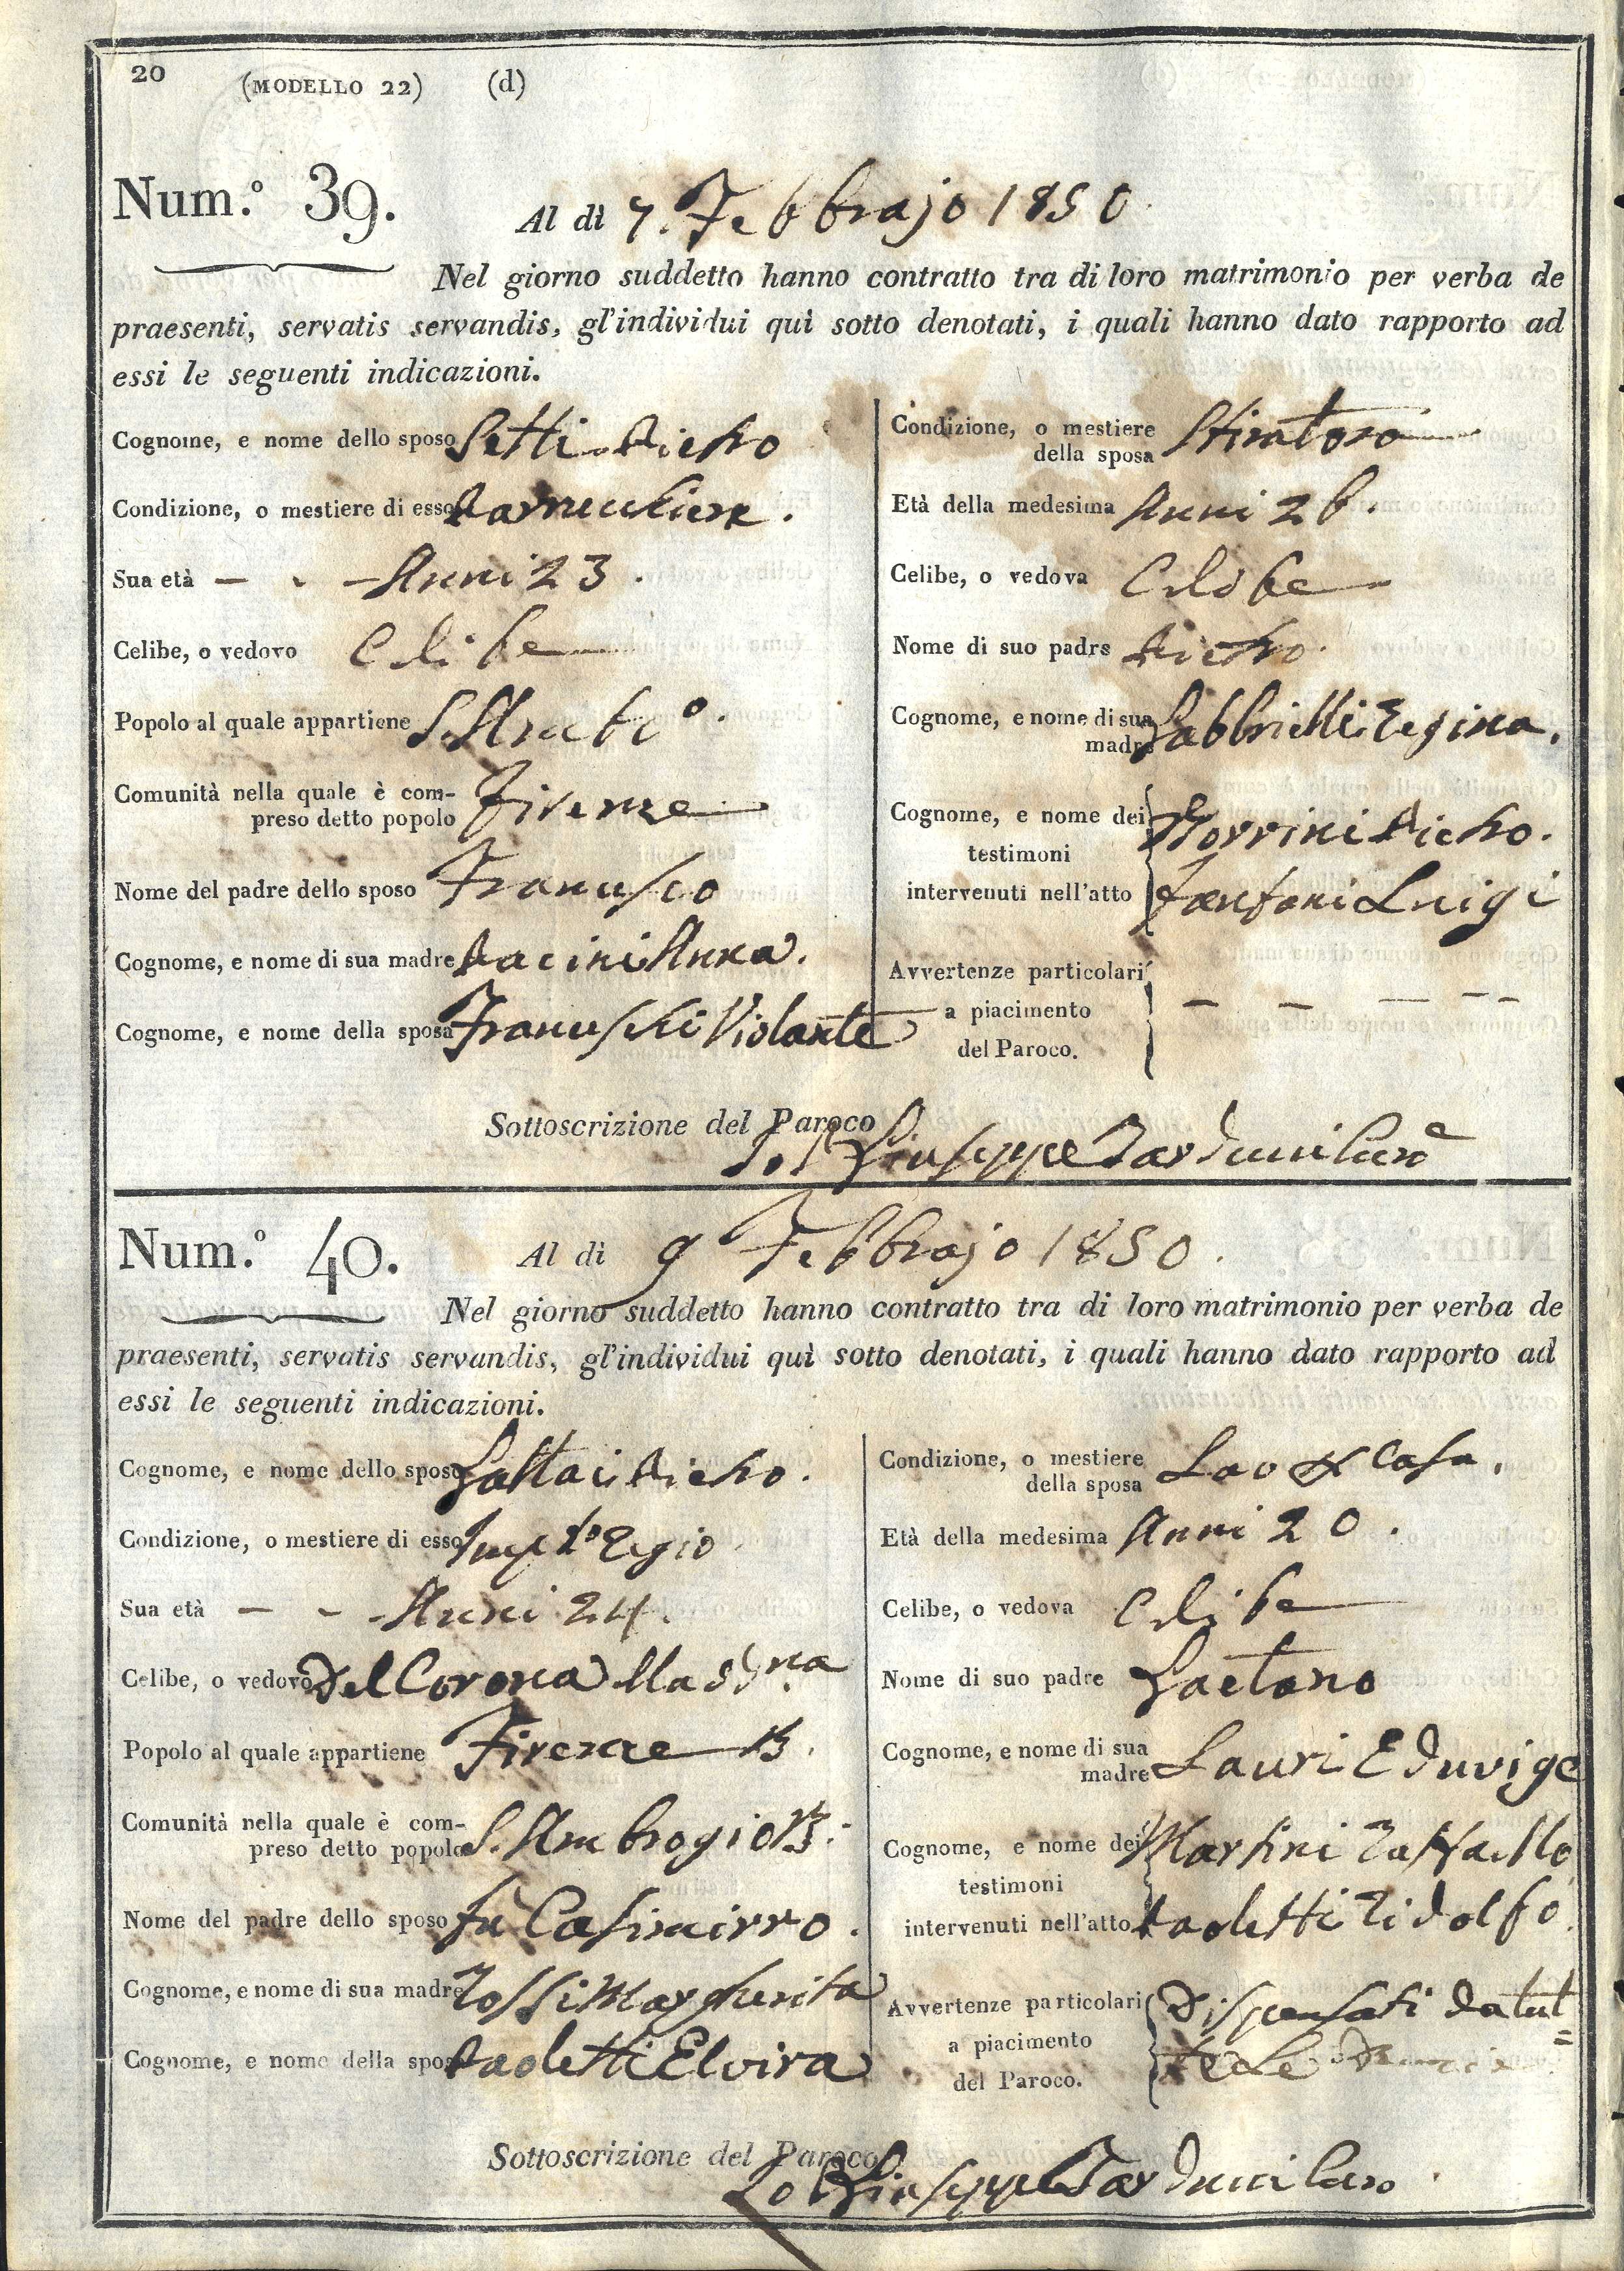 20 (MODELLO 22) (d)
Num.º 39.
Al dì 7. Febbrajo 1850
Nel giorno suddetto hanno contratto tra di loro matrimonio per verba de
praesenti, servatis servandis, gl'individui quì sotto denotati, i quali hanno dato rapporto ad
essi le seguenti indicazioni.
Cognome, e nome dello sposo Setti Pietro
Condizione, o mestiere di esso Parrucchiere.
Sua età — - — Anni 23.
Celibe, o vedovo Celibe
Popolo al quale appartiene S. Amb.º
Comunità nella quale è com-
preso detto popolo Firenze
Nome del padre dello sposo Francesco
Cognome, e nome di sua madre Pacini Anna.
Cognome, e nome della sposa Franceschi Violante
Condizione, o mestiere
della sposa Stiratora
Età della medesima Anni 26.
Celibe, o vedova Celibe
Nome di suo padre Pietro.
Cognome, e nome di sua
madre Gabbrielli Regina.
Cognome, e nome dei Borrini Pietro.
testimoni
intervenuti nell'atto Fanfani Luigi
Avvertenze particolari
a piacimento — — — - -
del Paroco.
Sottoscrizione del Paroco
Giuseppe Tarducci
Num.º 40.
Al dì 9 Febbrajo 1850.
Nel giorno suddetto hanno contratto tra di loro matrimonio per verba de
praesenti, servatis servandis, gl'individui quì sotto denotati, i quali hanno dato rapporto ad
essi le seguenti indicazioni.
Cognome, e nome dello sposo Gattai Pietro.
Condizione, o mestiere di esso Imp.to Regio
Sua età — - - Anni 24.
Celibe, o vedovo Del Corona
Popolo al quale appartiene Firenze
Comunità nella quale è com-
preso detto popolo S. Ambrogio
Nome del padre dello sposo fu Casimirro.
Cognome, e nome di sua madre Rossi Margherita
Cognome, e nome della sposa Paoletti Elvira
Condizione, o mestiere
della sposa Casa.
Età della medesima Anni 20.
Celibe, o vedova Celibe
Nome di suo padre Gaetano
Cognome, e nome di sua
madre Lauri Eduvige
Cognome, e nome dei Martini Raffaello
testimoni
intervenuti nell'atto Paoletti Ridolfo.
Avvertenze particolari Dispensati da tut=
a piacimento te le
del Paroco.
Sottoscrizione del Paroco
Giuseppe Tarducci